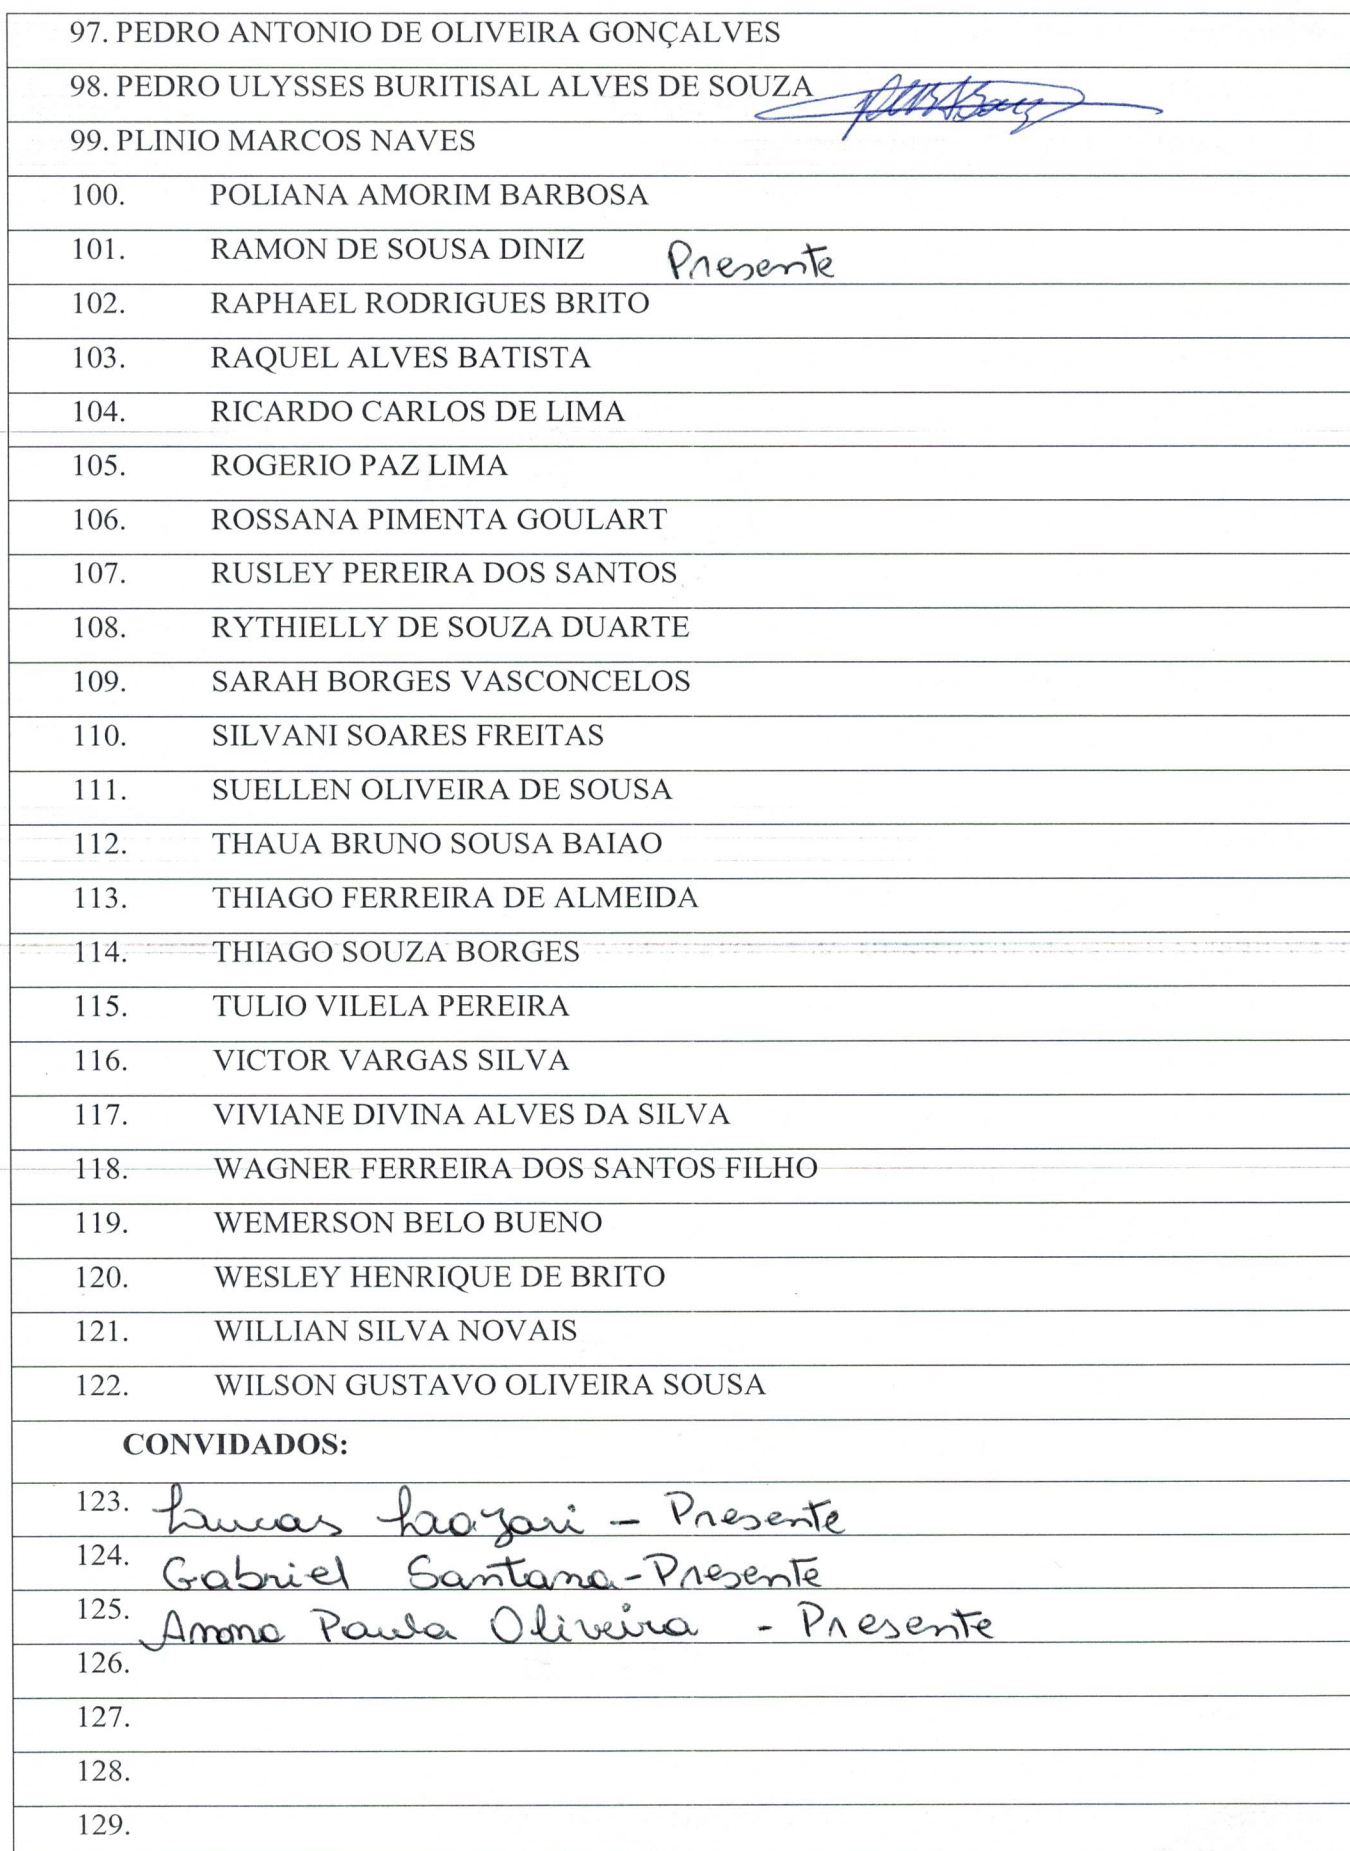 97. PEDRO ANTONIO DE OLIVEIRA GONÇALVES
98. PEDRO ULYSSES BURITISAL ALVES DE SOUZA
99. PLINIO MARCOS NAVES
100. POLIANA AMORIM BARBOSA
101. RAMON DE SOUSA DINIZ Presente
102. RAPHAEL RODRIGUES BRITO
103. RAQUEL ALVES BATISTA
104. RICARDO CARLOS DE LIMA
105. ROGERIO PAZ LIMA
106. ROSSANA PIMENTA GOULART
107. RUSLEY PEREIRA DOS SANTOS
108. RYTHIELLY DE SOUZA DUARTE
109. SARAH BORGES VASCONCELOS
110. SILVANI SOARES FREITAS
111. SUELLEN OLIVEIRA DE SOUSA
112. THAUA BRUNO SOUSA BAIAO
113. THIAGO FERREIRA DE ALMEIDA
114. THIAGO SOUZA BORGES
115. TULIO VILELA PEREIRA
116. VICTOR VARGAS SILVA
117. VIVIANE DIVINA ALVES DA SILVA
118. WAGNER FERREIRA DOS SANTOS FILHO
119. WEMERSON BELO BUENO
120. WESLEY HENRIQUE DE BRITO
121. WILLIAN SILVA NOVAIS
122. WILSON GUSTAVO OLIVEIRA SOUSA
CONVIDADOS:
123. Lucas - Presente
124. Gabriel Santana - Presente
125. Anna Paula Oliveira - Presente
126.
127.
128.
129.